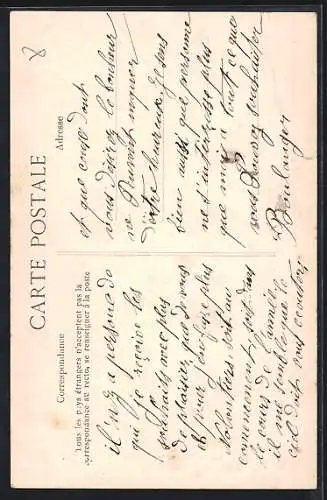 CARTE POSTALE
Correspondance
Tous les pays étrangers n'acceptent pas la
correspondance au recto, se renseigner à la poste
Adresse
il n'y a personne de
qui je reçoive les
souhaits avec plus
de plaisir que de vous
et pour j'en fasse plus
volontiers soit au
commencement soit dans
le cours de l'année
il me semble que le
ciel doit vous écouter
et que vous dont
vous désirez le bonheur
ne peuvent manquer
d'être heureux je sens
bien aussi que personne
ne s'intéresse plus
que moi à tout ce que
vous pouvez souhaiter
Boulanger